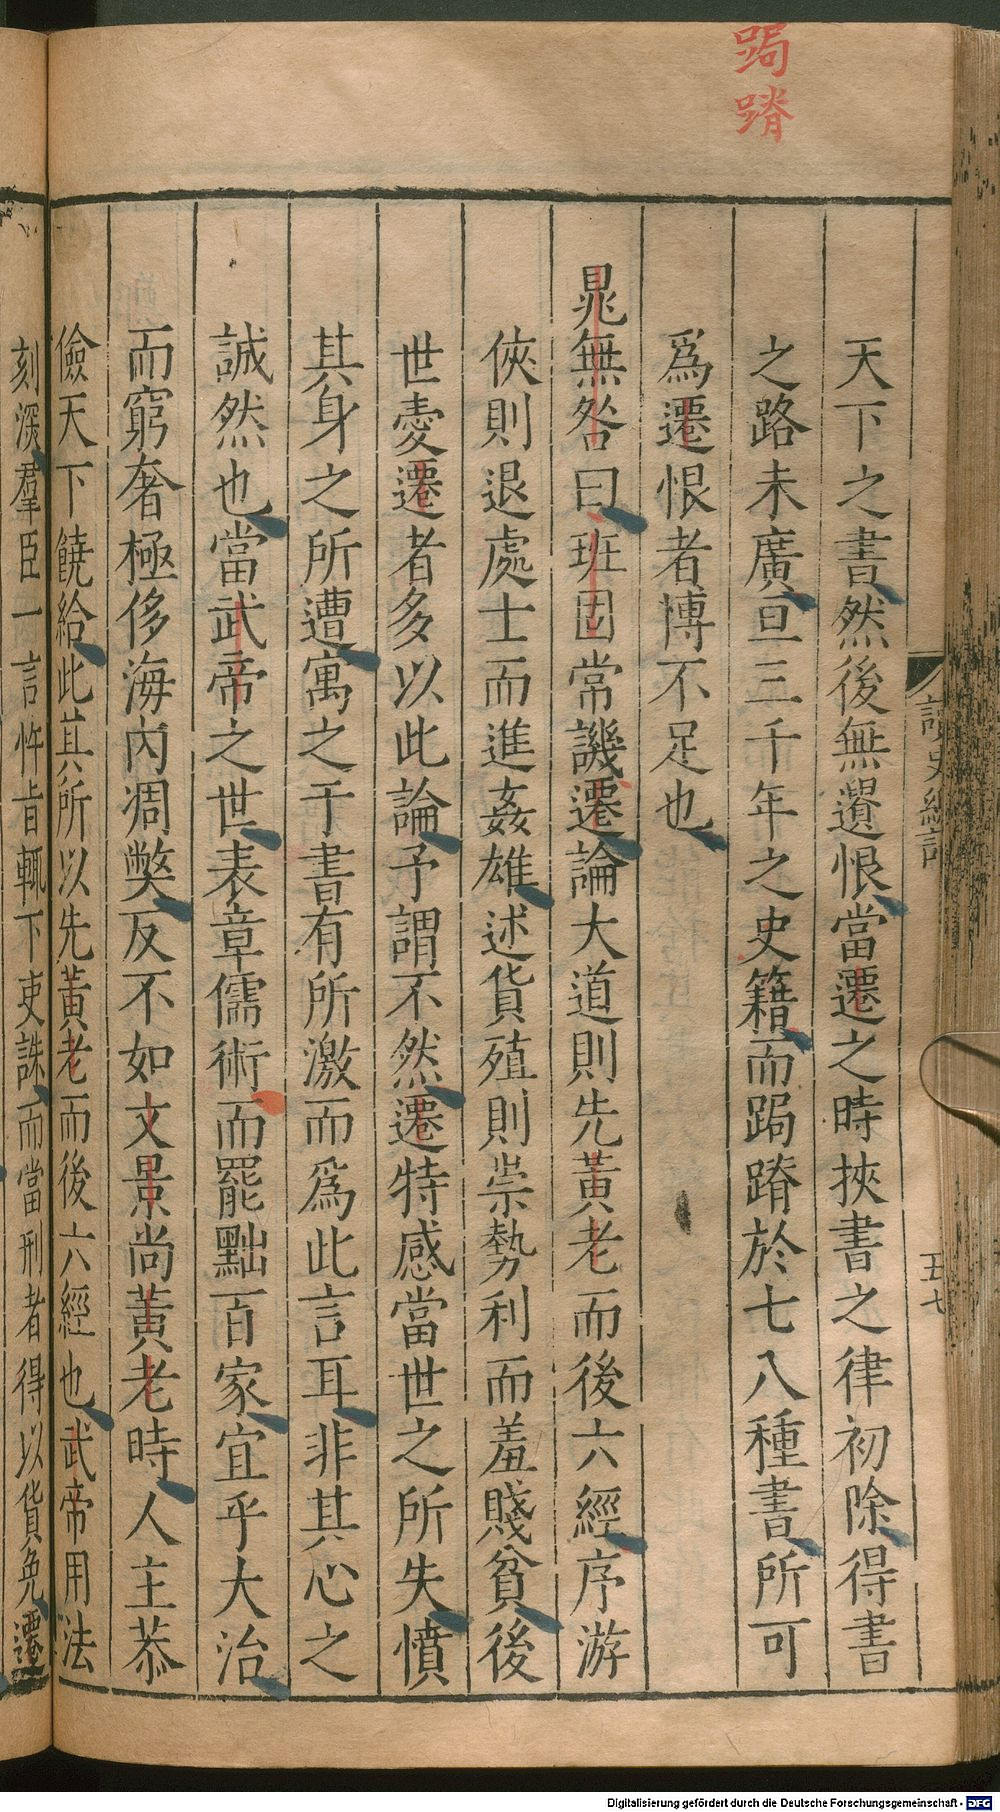 跼蹐
天下之書然後無遺恨當遷之時挾書之律初除得書
之路未廣亘三千年之史籍而跼蹐於七八種書所可
爲遷恨者博不足也
晁無咎曰班固常譏遷論大道則先黃老而後六經序游
俠則退處士而進姦雄述貨殖則崇勢利而羞賤貧後
世愛遷者多以此論予謂不然遷特感當世之所失憤
其身之所遭寓之于書有所激而爲此言耳非其心之
誠然也當武帝之世表章儒術而罷黜百家宜乎大治
而窮奢極侈海內凋獘反不如文景尚黃老時人主恭
儉天下饒給此其所以先黃老而後六經也武帝用法
刻深羣臣一言忤旨輒下吏誅而當刑者得以貨免遷
五七
Digitalisierung gefördert durch die Deutsche Forschungsgemeinschaft - DFG